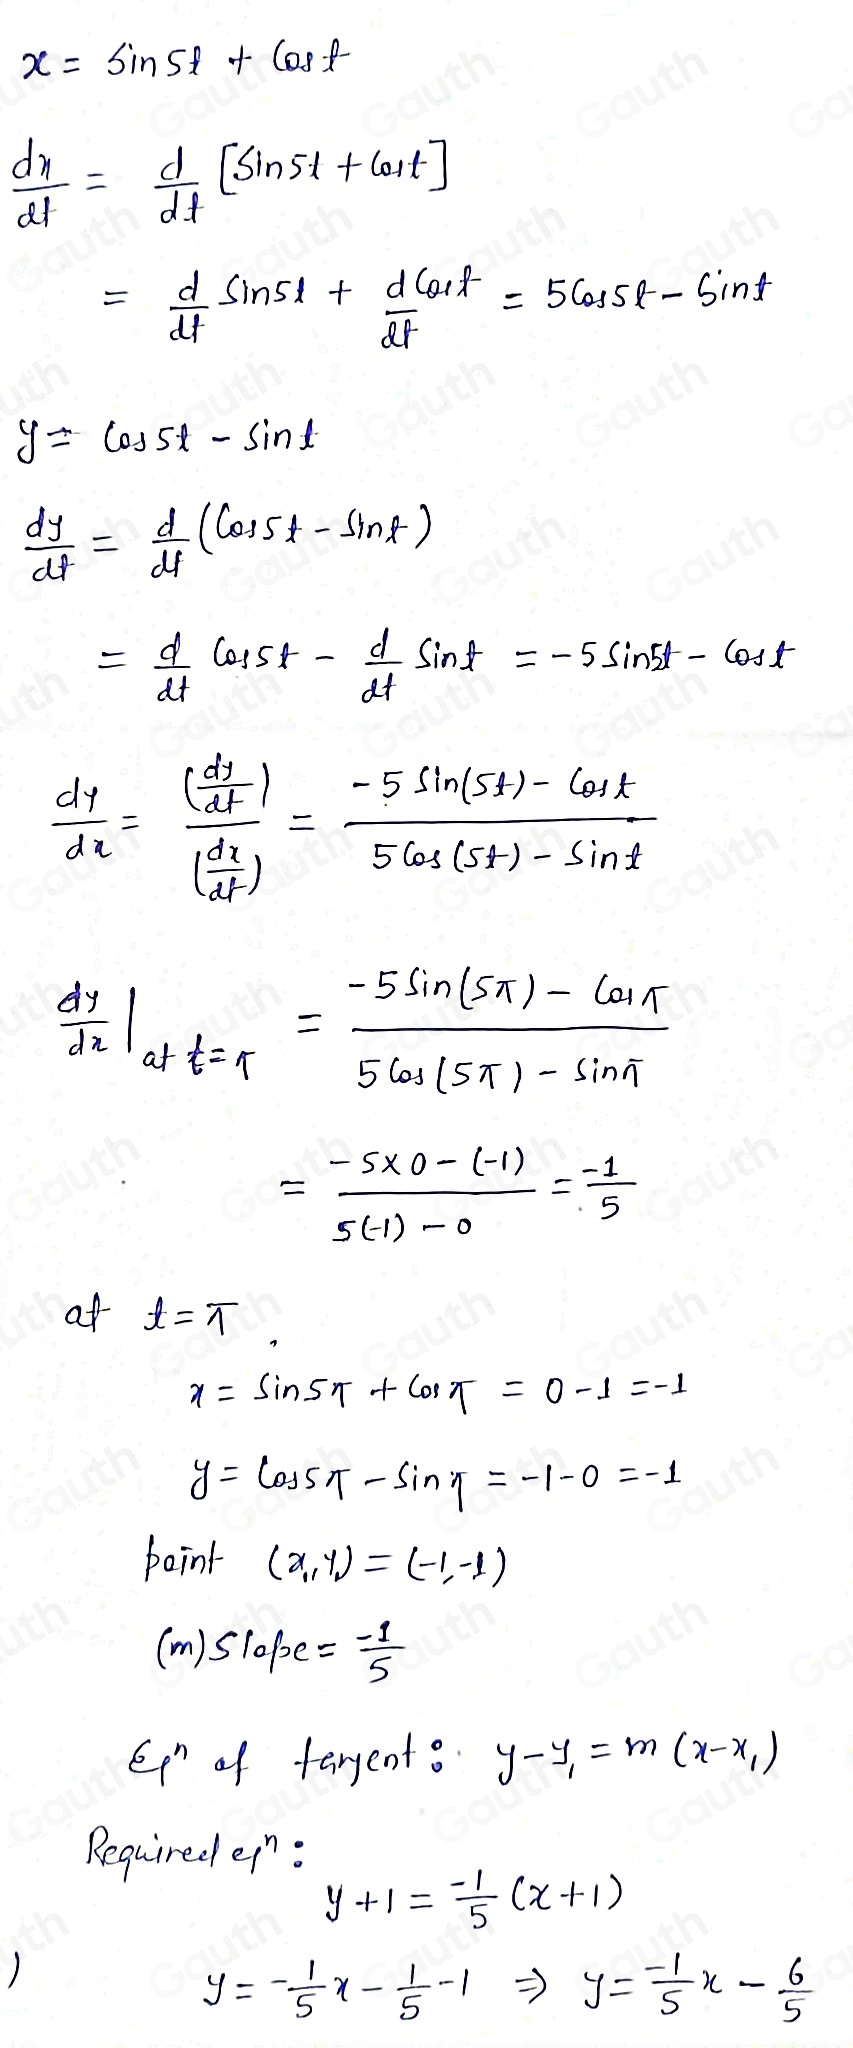 x = Sin5t + Cost
dx/dt = d/dt [Sin5t + Cost]
= d/dt Sin5t + dCost/dt = 5Cos5t - Sint
y = Cos5t - Sint
dy/dt = d/dt (Cos5t - Sint)
= d/dt Cos5t - d/dt Sint = -5Sin5t - Cost
dy/dx = (dy/dt)/(dx/dt) = (-5Sin(5t) - Cost)/(5Cos(5t) - Sint)
dy/dx | at t=π = (-5Sin(5π) - Cosπ)/(5Cos(5π) - Sinπ)
= (-5×0-(-1))/(5(-1)-0) = -1/5
at t=π
x = Sin5π + Cosπ = 0-1 = -1
y = Cos5π - Sinπ = -1-0 = -1
point (x₁,y₁) = (-1,-1)
(m) Slope = -1/5
Eqⁿ of tangent: y-y₁ = m(x-x₁)
Required eqⁿ:
y+1 = -1/5 (x+1)
) y = -1/5 x - 1/5 - 1 ⇒ y = -1/5 x - 6/5